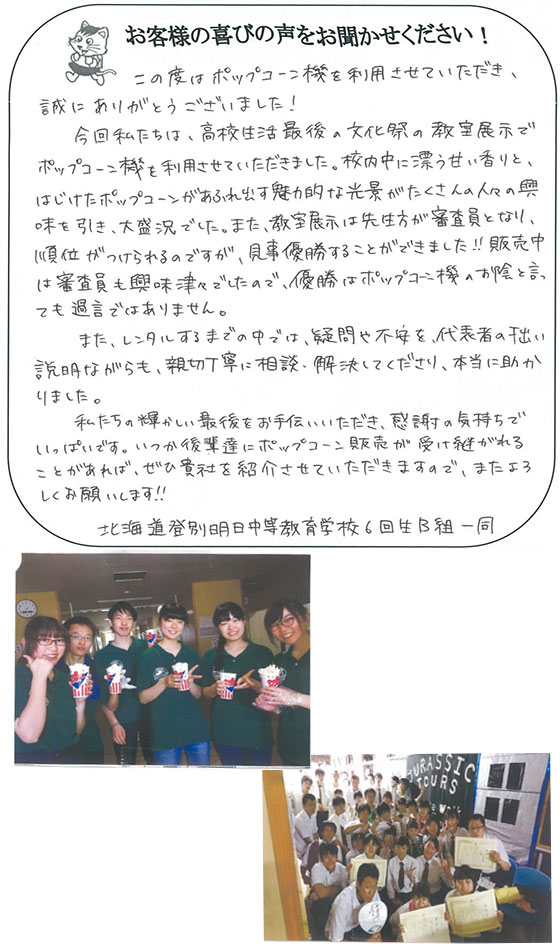 お客様の喜びの声をお聞かせください！
この度はポップコーン機を利用させていただき、
誠にありがとうございました！
今回私たちは、高校生活最後の文化祭の教室展示で
ポップコーン機を利用させていただきました。校内中に漂う甘い香りと、
はじけたポップコーンがあふれ出す魅力的な光景がたくさんの人々の興
味を引き、大盛況でした。また、教室展示は先生方が審査員となり、
順位がつけられるのですが、見事優勝することができました!!販売中
は審査員も興味津々でしたので、優勝はポップコーン機のお陰と言っ
ても過言ではありません。
また、レンタルするまでの中では、疑問や不安を、代表者の拙い
説明ながらも、親切丁寧に相談・解決してくださり、本当に助か
りました。
私たちの輝かしい最後をお手伝いいただき、感謝の気持ちで
いっぱいです。いつか後輩達にポップコーン販売が受け継がれる
ことがあれば、ぜひ貴社を紹介させていただきますので、またよろ
しくお願いします!!
北海道登別明日中等教育学校6回生B組一同
JURASSIC
TOURS